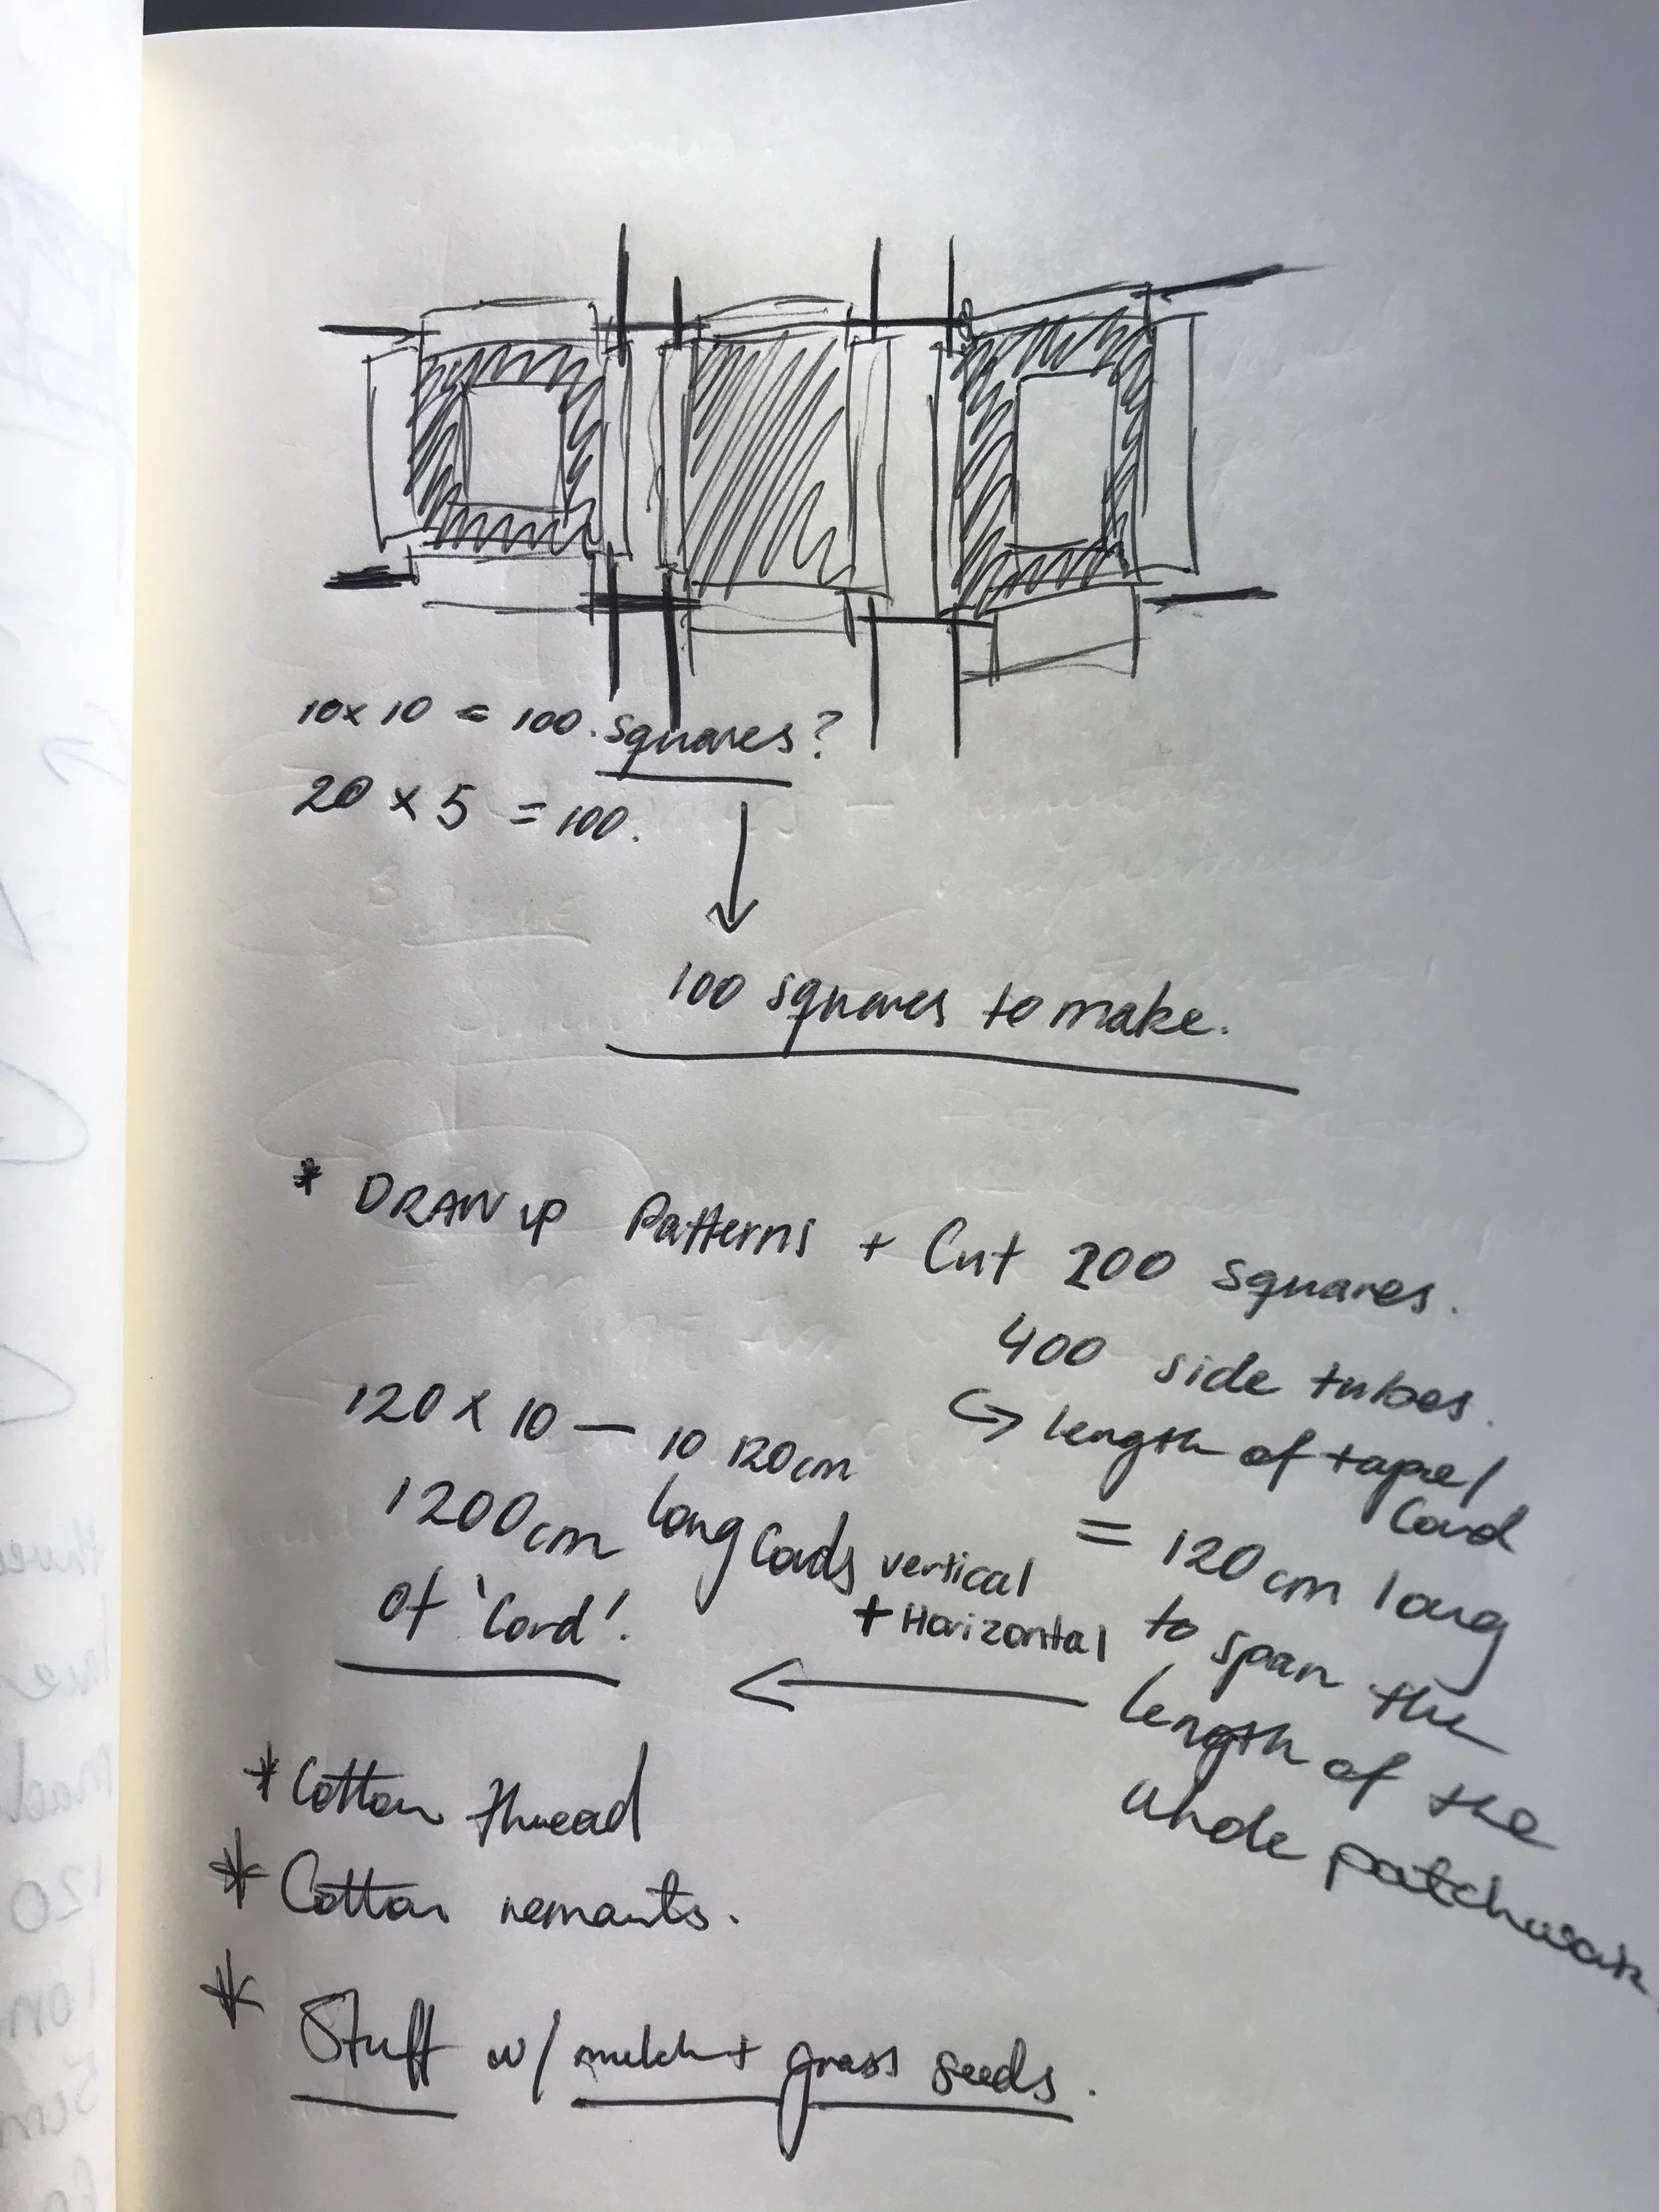 10x 10 = 100. squares?
20 x 5 = 100.
100 squares to make.
* DRAW up Patterns + Cut 200 squares.
400 side tubes.
↪ length of tape/
Cord
= 120 cm long
to span the
length of the
whole patchwork.
120 x 10 — 10 120cm
long Cords vertical
+ Horizontal
1200cm
of 'Cord'.
* Cotton thread
* Cotton remants.
* Stuff w/ mulch + grass seeds.